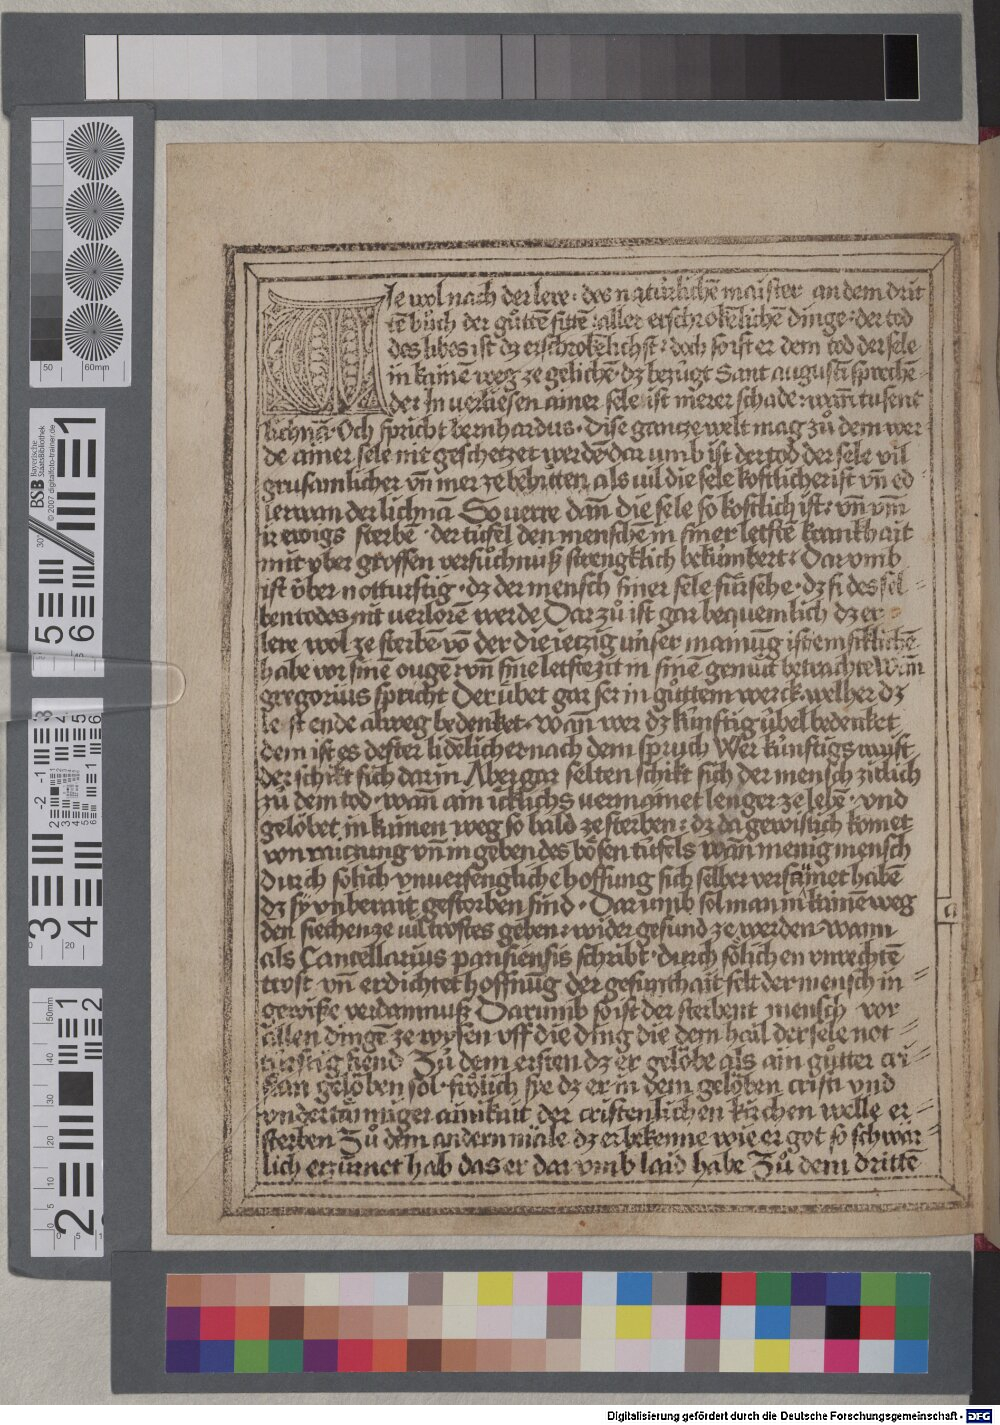 Wie wol nach der lere · des natürlichē maister an dem drit
tē bůch der gůttē sittē : aller erschrokēliche dinge · der tod
des libes ist dz erschrokēlichst : doch so ist er dem tod der sele
in kaine weg ze gelichē · dz bezügt Sant augustī spreche=
de : In uerliesen ainer sele ist merer schade : wañ tusent
lichnā · Och spricht bernhardus · Dise gantze welt mag zů dem wer
de ainer sele nit geschetzet werdē dar umb ist der tod der sele vil
grusamlicher uñ mer ze behüten als uil die sele kostlicher ist uñ ed
ler wan der lichnā So uerre dañ die sele so kostlich ist : uñ vm̄
ir ewigs sterbē · der tüfel den menschē in siner letstē krankhait
mit vber grossen versůchnuß strengklich bekümbert : Dar vmb
ist über notturftig · dz der mensch siner sele für sehe · dz si des sel
ben todes nit uerlorē werde Dar zů ist gar bequemlich dz er
lere wol ze sterbē vō der die ietzig unser mainūg ist emsiklichē
habe vor sinē ougē : uñ sine letste zit in sinē gemüt betrachte Wañ
gregorius spricht Der übet gar ser in gůttem werck welher dz
lest ende alweg bedenket · wañ wer dz künftig übel bedenket
dem ist es dester lidēlicher nach dem spruch Wer künftigs waist
der schikt sich darin Aber gar selten schikt sich der mensch zitlich
zů dem tod · wañ ain icklichs uermainet lenger ze lebē · vnd
gelöbet in kainen weg so bald ze sterben : dz da gewislich komet
von raitzung uñ in geben des bösen tüfels wañ menig mensch
durch sölich vnuerfengliche hoffung sich selber versümet habē
dz sy vnberait gestorben sind · Dar umb sol man in kainē weg
den siechen ze uil trostes geben : wider gesund ze werden · wann
als Cancellarius parisiensis schribt · durch sölichen vnrechtē
trost uñ erdichtet hoffnūg der gesunthait felt der mensch in =
gewiße verdamnuß Darumb so ist der sterbent mensch vor
allen dingē ze wysen vff die ding die dem hail der sele not =
turftig sind Zů dem ersten dz er gelöbe als ain gůtter cri =
stan gelöben sol · frölich sye dz er in dem gelöben cristi vnd
vnder täniger ainikait der cristenlichen kirchen welle er =
sterben Zů dem andern māle dz er bekenne wie er got so schwär =
lich erzürnet hab das er dar vmb laid habe Zů dem drittē
a
50 60mm
BSB Bayerische StaatsBibliothek
© 2007 digitalfoto-trainer.de
Digitalisierung gefördert durch die Deutsche Forschungsgemeinschaft - DFG